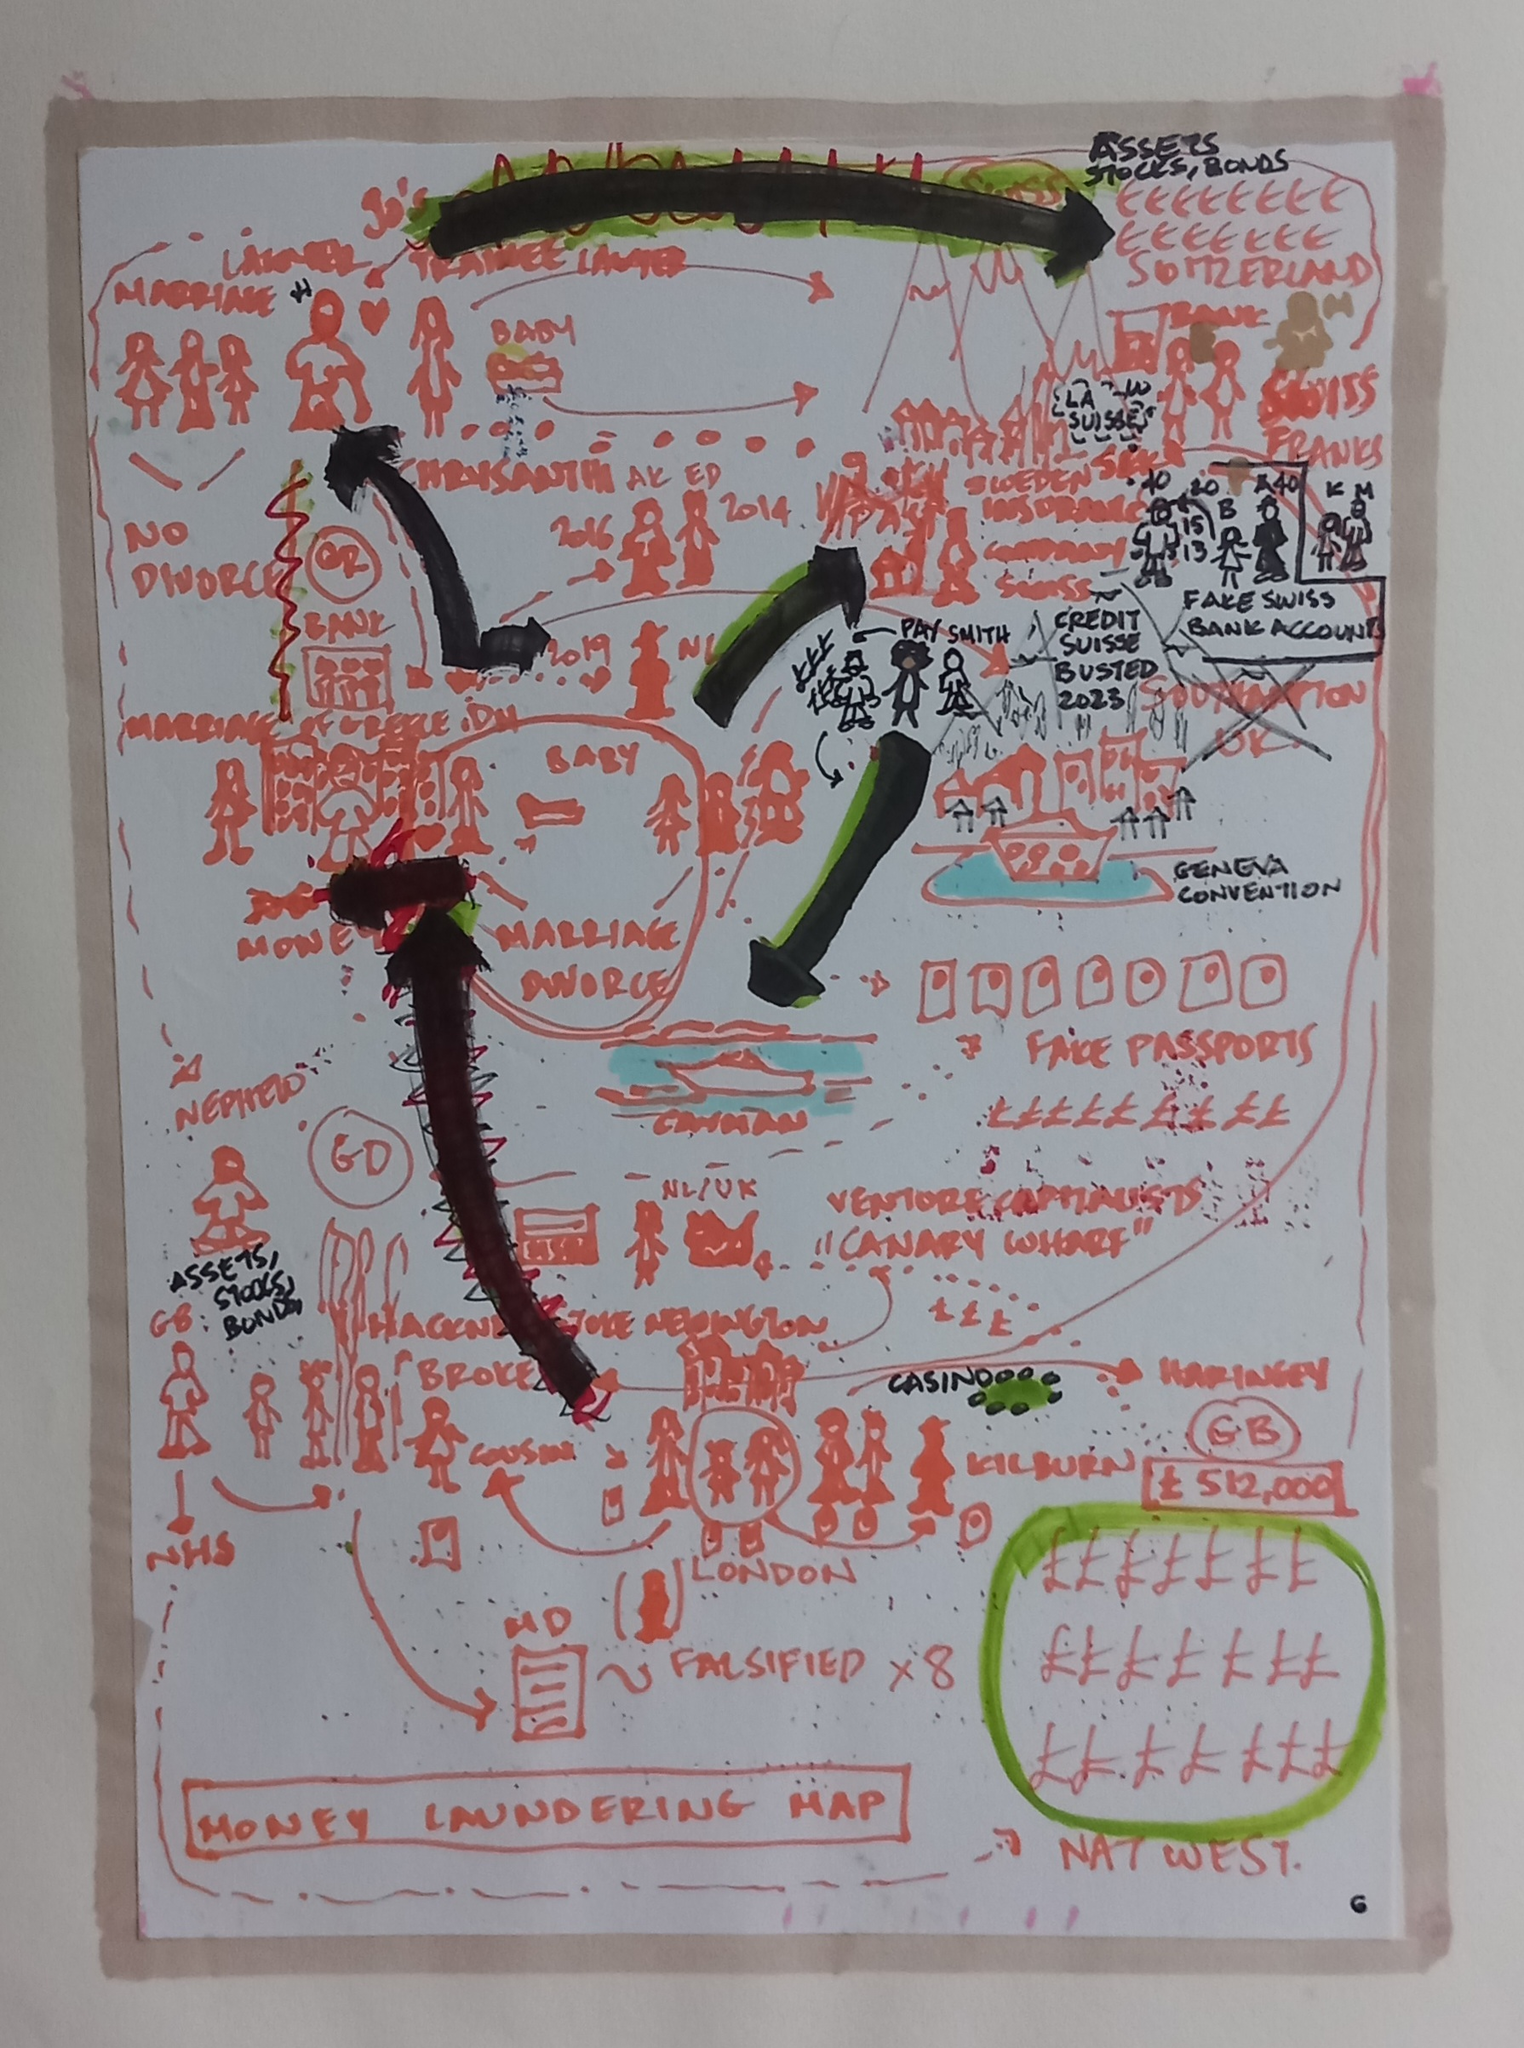 ASSETS
STOCKS, BONDS
Jo's
SWISS
€€€€€€€€
€€€€€€€
SWITZERLAND
LAWYER
TRAINEE LAWYER
MARRIAGE
H
BABY
BANK
M
LA
SUISSE
SWISS
FRANKS
CHRYSANTHI AK ED
SWEDEN SEK
INSURANCE
COMPANY
SWISS
2016
2014
40 20 A40
B
15
13
K M
FAKE SWISS
BANK ACCOUNT
NO
DIVORCE
GR
BANK
2019
NL
PAY SMITH
CREDIT
SUISSE
BUSTED
2023
SOUTHAMPTON
UK
MARRIAGE OF GREECE
BABY
GENEVA
CONVENTION
MONEY
MARRIAGE
DIVORCE
FAKE PASSPORTS
CAYMAN
£££££££££
NEPHEW
GD
NL/UK
VENTURE CAPITALISTS
"CANARY WHARF"
ASSETS,
STOCKS,
BONDS,
GB
HACKNEY STOKE NEWINGTON
£££
BROKE
CASINO
HARINGEY
COUSIN
KILBURN
GB
£ 512,000
NHS
LONDON
£££££££
MD
FALSIFIED x 8
£££££££
£££££££
MONEY LAUNDERING MAP
NAT WEST.
6